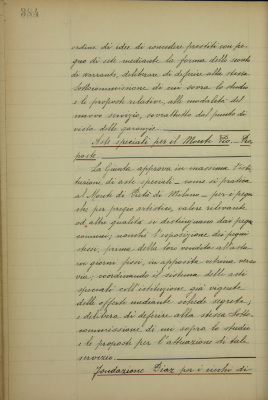 384
ordine di idee di concedere prestiti con pe-
gno di sete mediante la forma delle sconti
di warrants, deliberare di deferire alla stessa
Sottocommissione di cui sovra lo studio
e le proposte relative, alle modalità del
nuovo servizio, sovratutto dal punto di
vista delle garanzie.
Aste speciali per il Monte Pio - Pro-
poste
La Giunta approva in massima l'isti-
tuzione, di aste speciali - come si pratica
al Monte di Pietà di Milano - per i pegni
che per pregio artistico, valore rilevante
od altra qualità si distinguono dai pegni
comuni; nonché l'esposizione dei pegni
stessi, prima della loro vendita all'asta
in giorni fissi, in apposita vetrina
coordinando il sistema delle aste
speciali coll'istituzione già vigente
delle offerte mediante schede segrete;
e delibera di deferire alla stessa Sotto-
commissione di cui sopra lo studio
e le proposte per l'attuazione di tale
servizio.
Fondazione Diaz per i ciechi di-